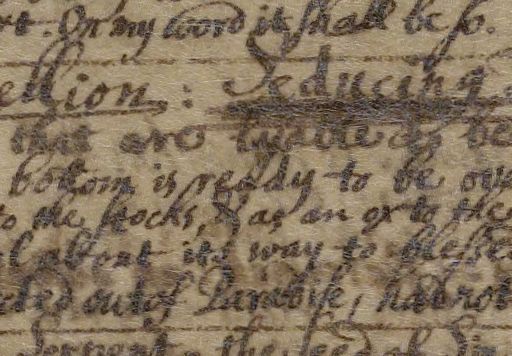 rt. On my word it shall be so.
ellion : Seducing
that are be
bottom is ready to be ov
to the stocks, & as an ox to the
l about its way to blesse
cted out of Paradise, had not
Serpent the